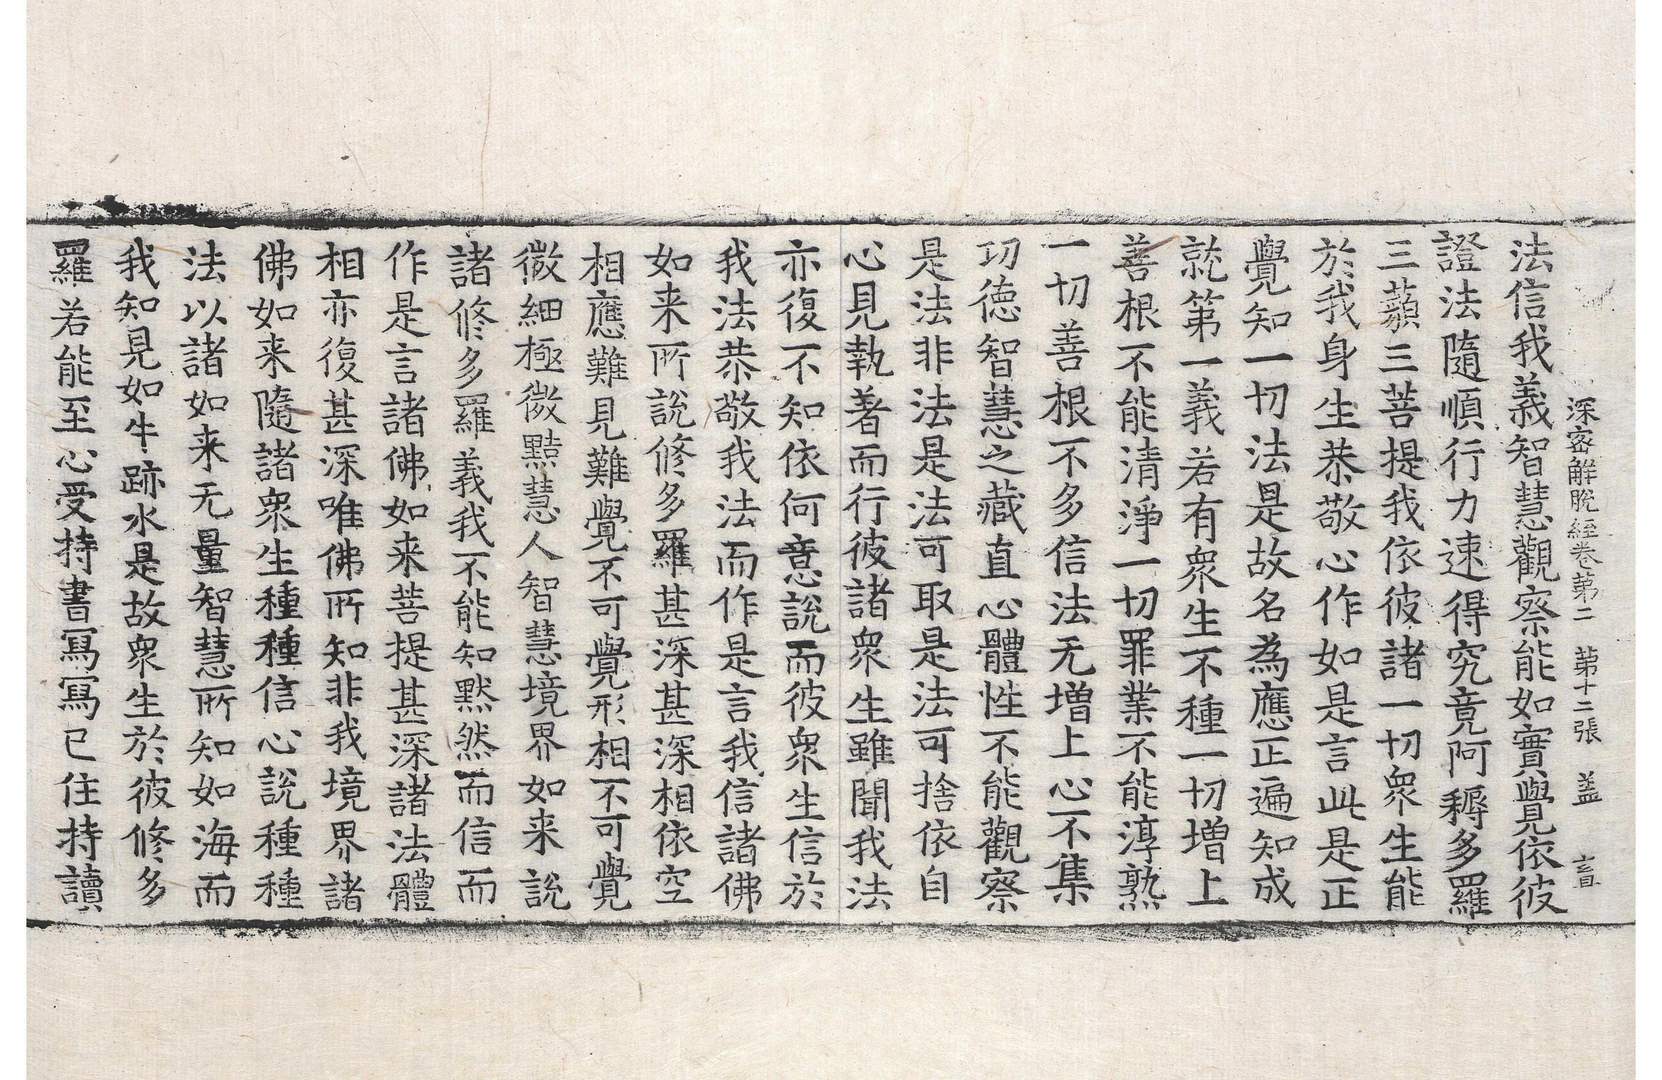 深密解脫經卷第二 第十二張 盖
法信我義智慧觀察能如實覺依彼
證法隨順行力速得究竟阿耨多羅
三藐三菩提我依彼諸一切衆生能
於我身生恭敬心作如是言此是正
覺知一切法是故名為應正遍知成
就第一義若有衆生不種一切增上
善根不能清淨一切罪業不能淳熟
一切善根不多信法无增上心不集
功德智慧之藏直心體性不能觀察
是法非法是法可取是法可捨依自
心見執著而行彼諸衆生雖聞我法
亦復不知依何意說而彼衆生信於
我法恭敬我法而作是言我信諸佛
如来所說修多羅甚深甚深相依空
相應難見難覺不可覺形相不可覺
微細極微黠慧人智慧境界如来說
諸修多羅義我不能知默然而信而
作是言諸佛如来菩提甚深諸法體
相亦復甚深唯佛所知非我境界諸
佛如来隨諸衆生種種信心說種種
法以諸如来无量智慧所知如海而
我知見如牛跡水是故衆生於彼修多
羅若能至心受持書寫寫已住持讀